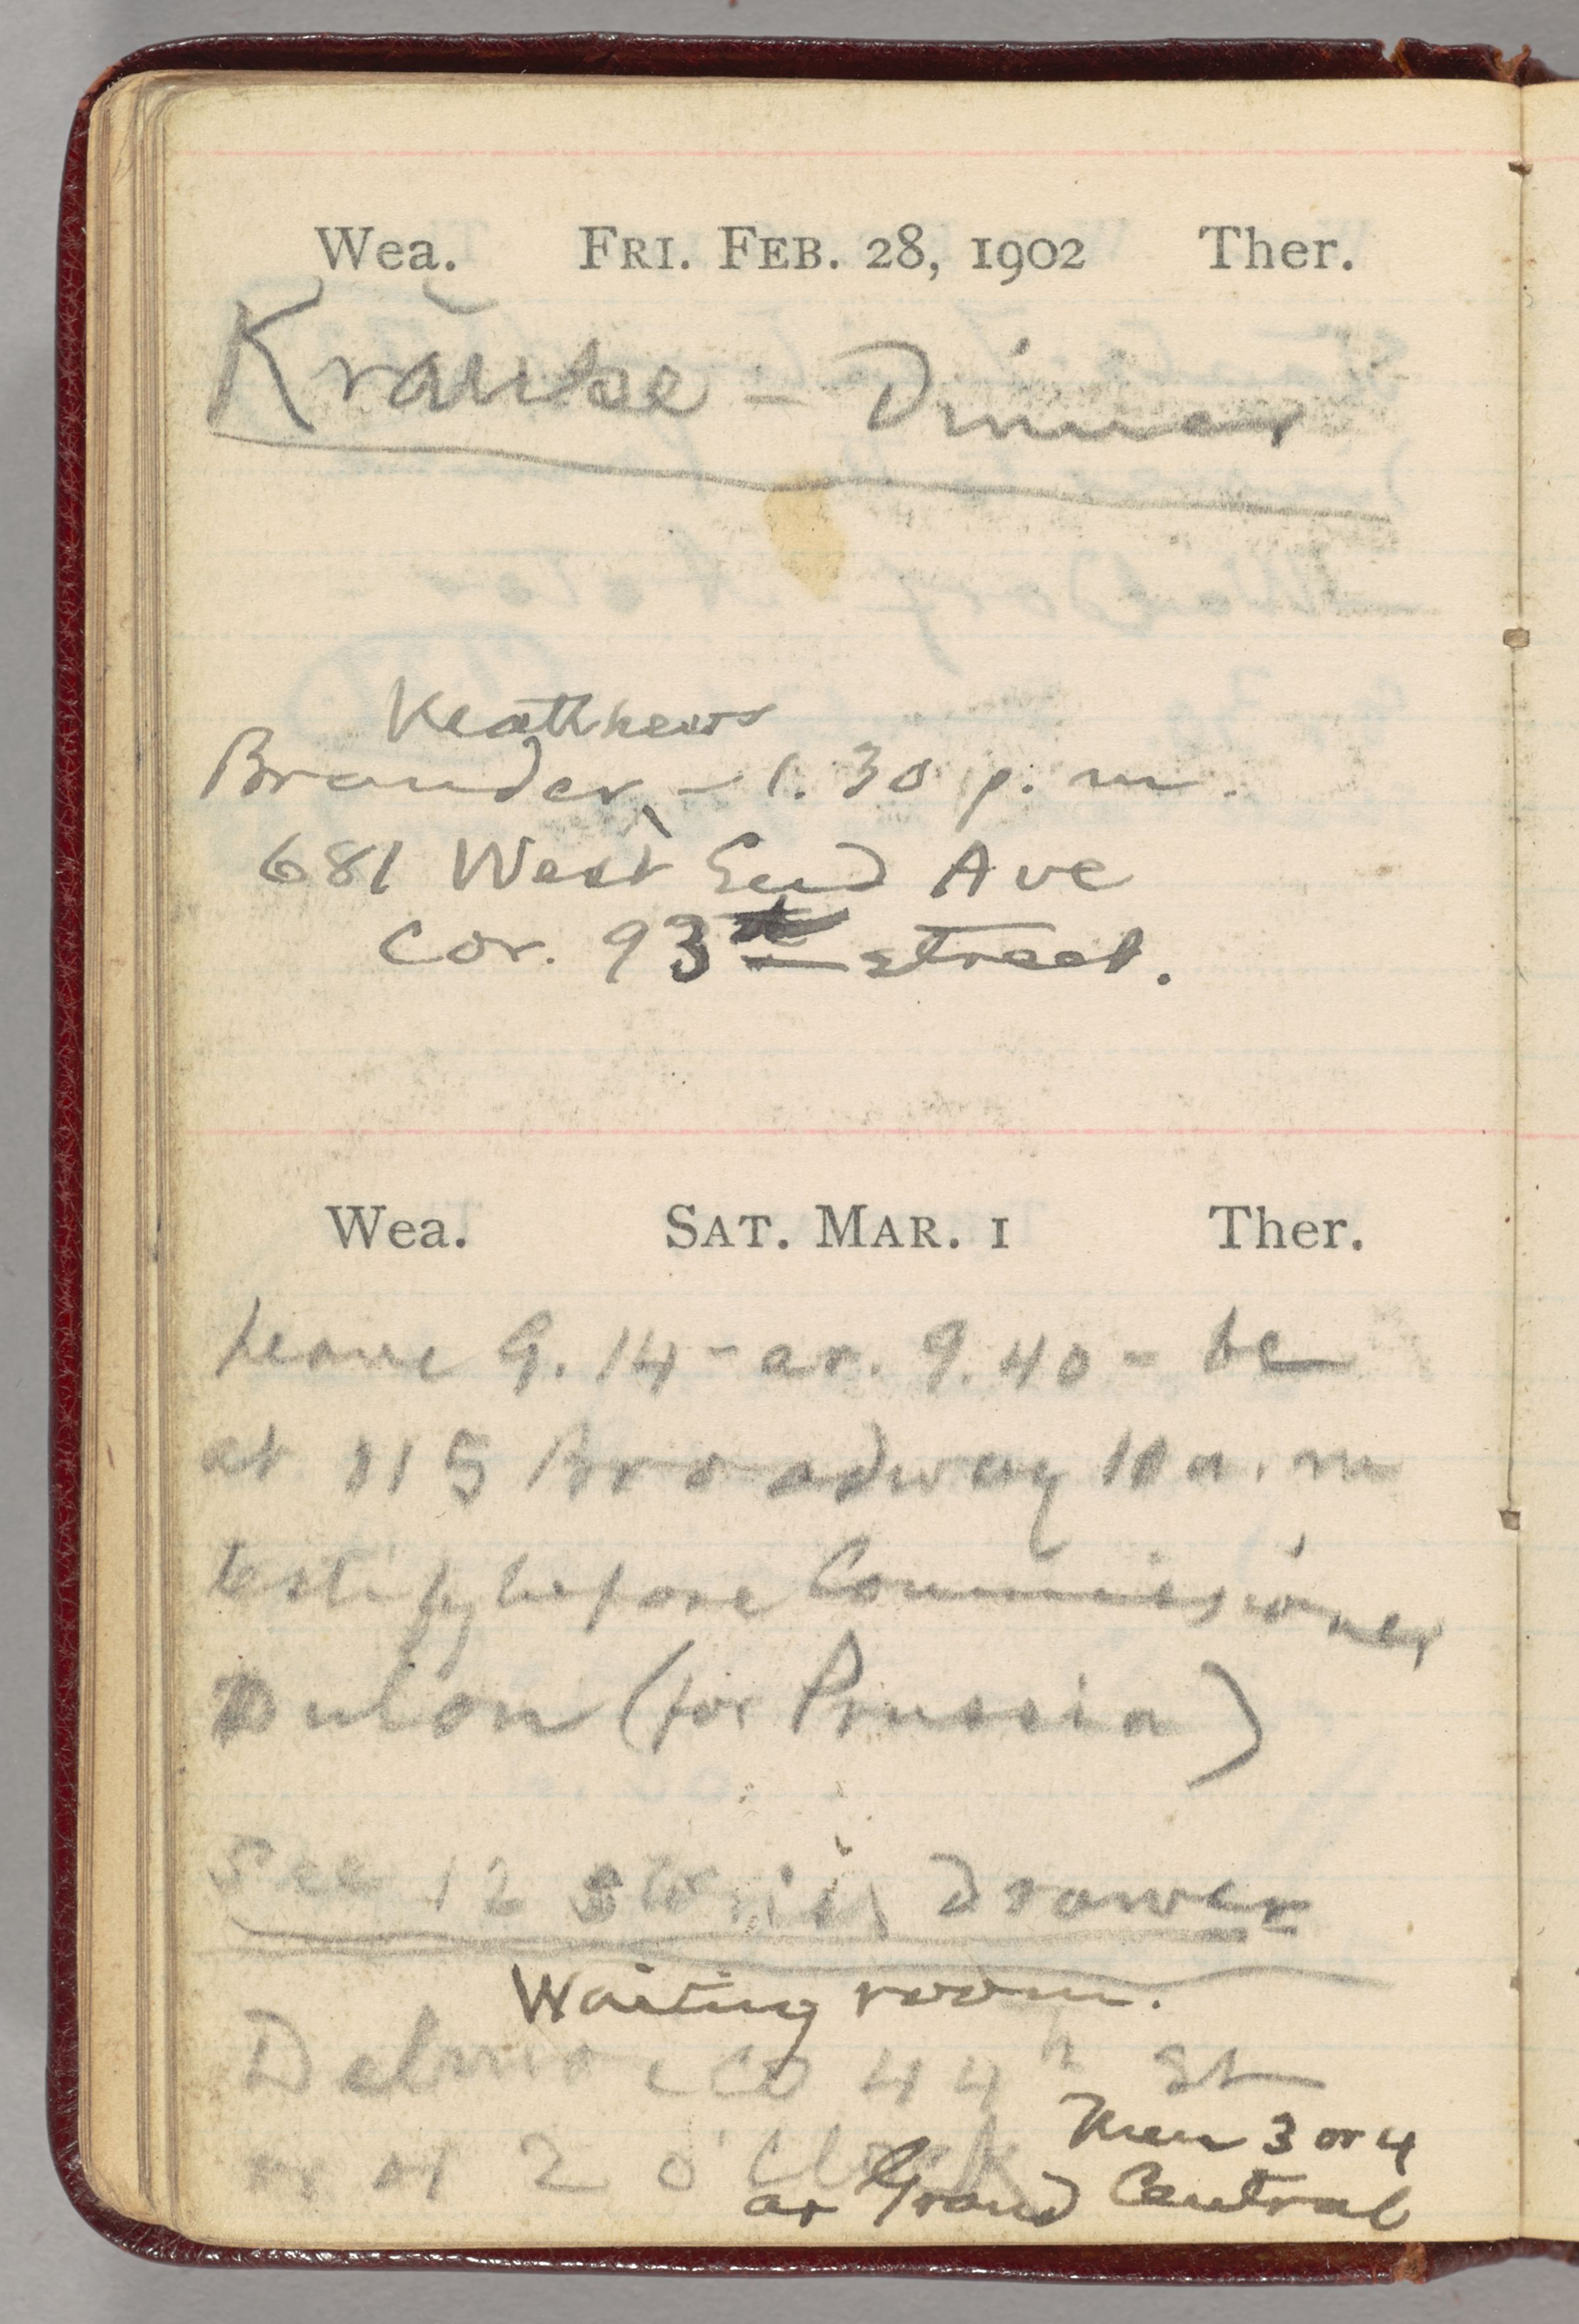 Wea. FRI. FEB. 28, 1902 Ther.
Krause - Dinner
Matthews
Brander ^ - 1.30 p. m.
681 West End Ave
Cor. 93th street.
Wea. SAT. MAR. 1 Ther.
Leave 9.14 - ar. 9.40 - be
at 115 Broadway 10 a. m
testify before Commissioner
Dulon (for Prussia)
See 12 stories drawer
Waiting room.
Delmo ico 44h St
at 2 o'Clock
Then 3 or 4
at Grand Central